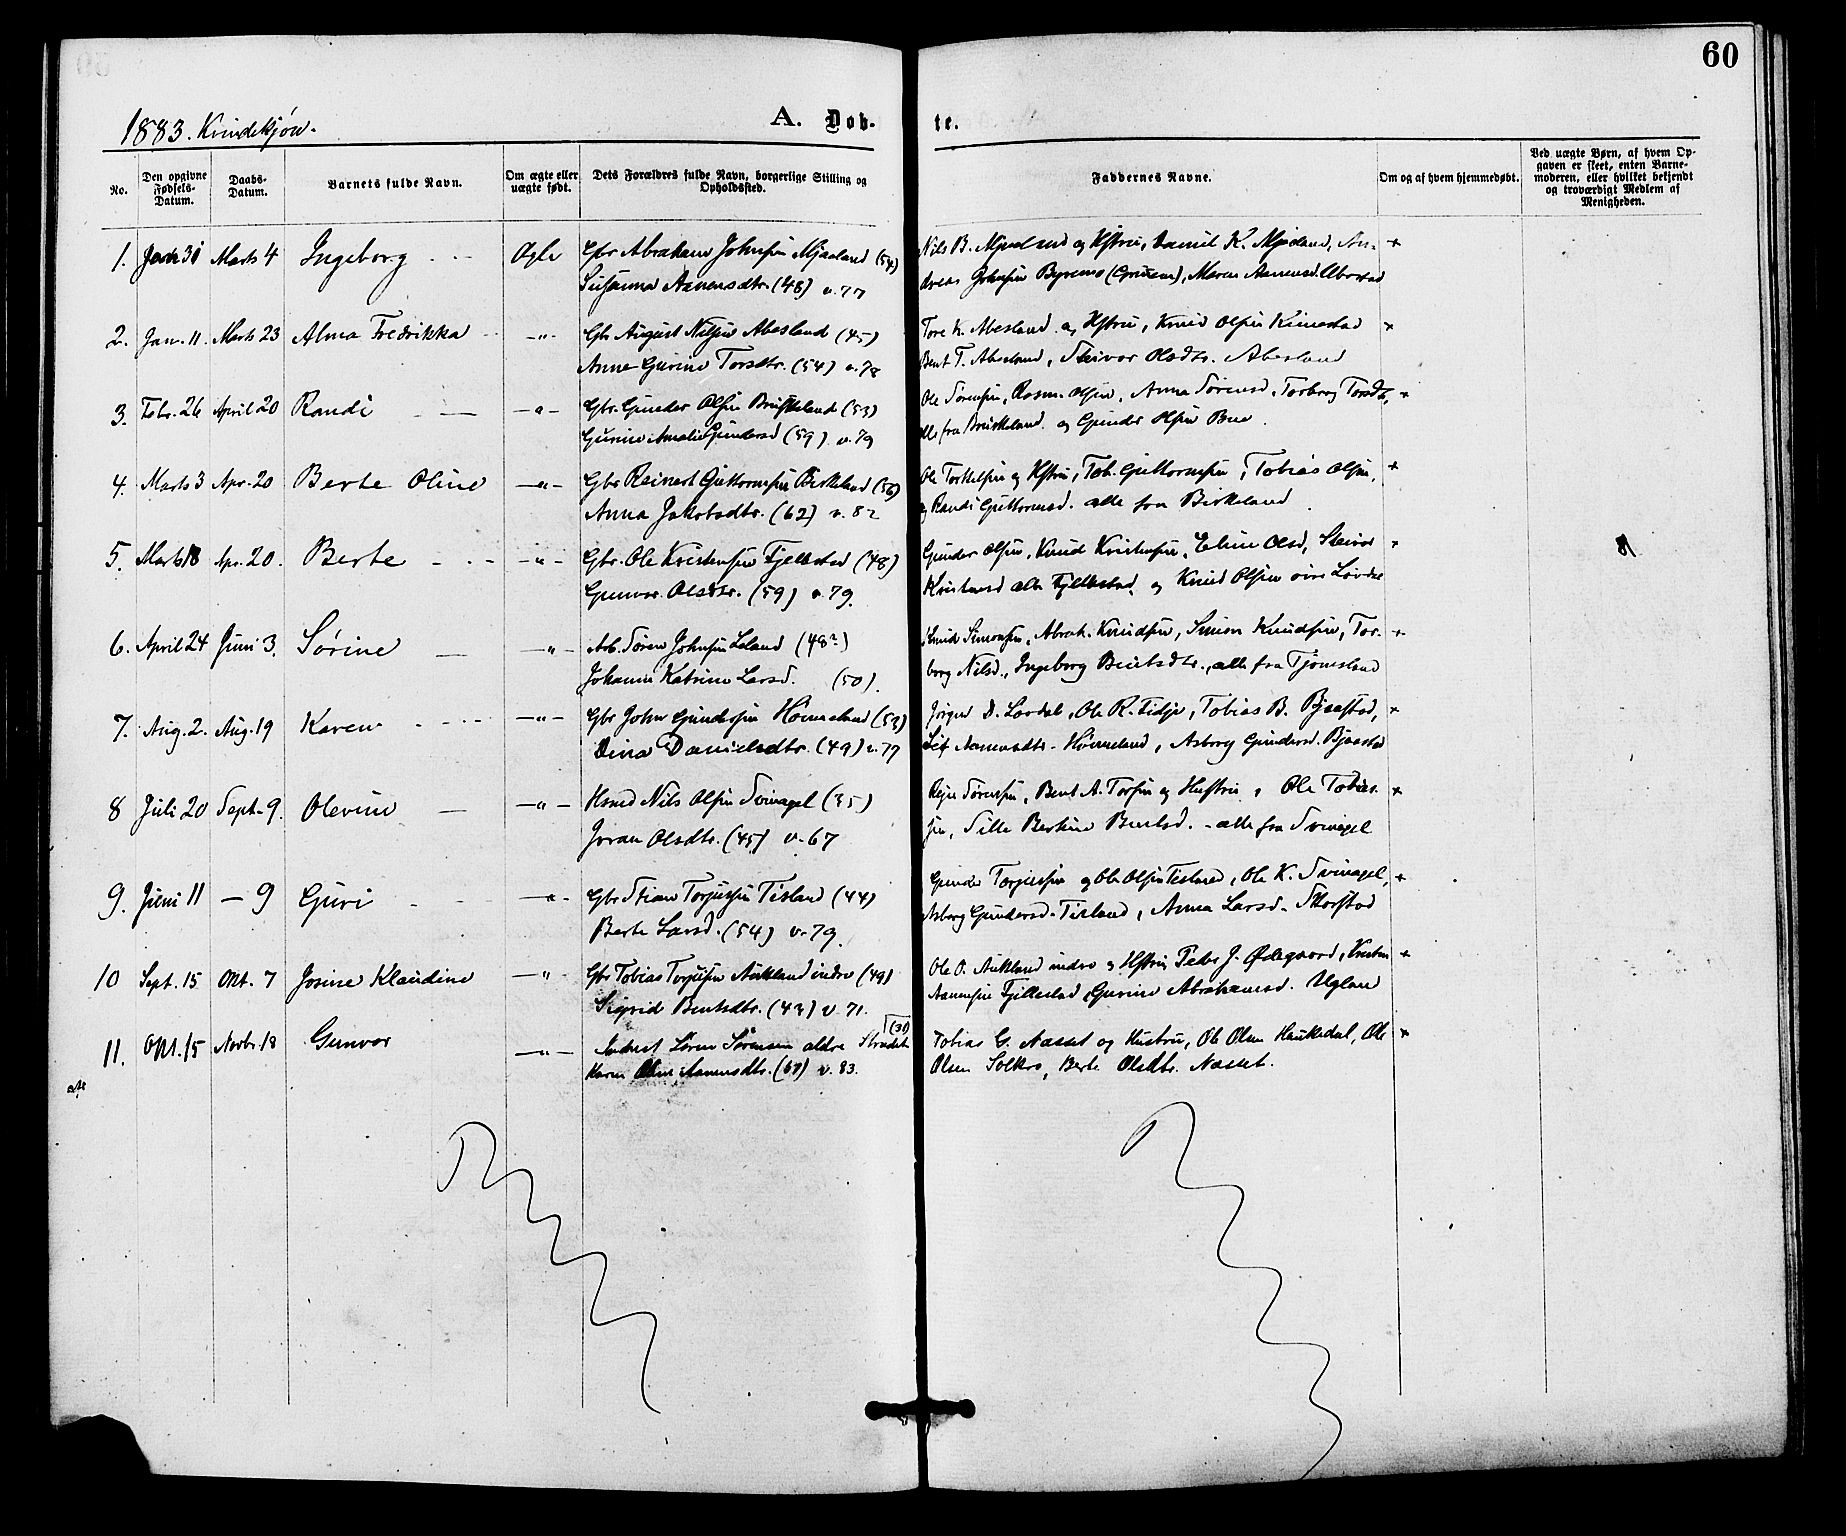 60
1883. Kvindekjøn.
A. Døb- te.
No.
Den opgivne Fødsels-Datum.
Daabs-Datum.
Barnets fulde Navn.
Om ægte eller uægte født.
Dets Forældres fulde Navn, borgerlige Stilling og Opholdssted.
Faddernes Navne.
Om og af hvem hjemmedøbt.
Ved uægte Børn, af hvem Opgaven er skeet, enten Barnemoderen, eller hvilket bekjendt og troværdigt Medlem af Menigheden.
1. 31 Marts 4 Ingeborg Ægte Gbr Abraham Johnsen Mjaaland (54) Nils B. Mjaaland og Hstru, Daniel K. Mjaaland, An- +
Susanna Aanensdtr. (48) v. 77 dreas Johnsen Byremo
2. Jan. 11. Marts 23 Alma Fredrikka -"- Gbr August Nilsen Abesland (45) Tore K. Abesland og Hstru, Knud Olsen Kimestad +
Anne Gurine Torsdtr. (54) v. 78 Bent T. Abesland, Olsdtr. Abesland
3. Febr. 26 April 20 Randi -"- Gbr. Gunder Olsen (53) Ole Sørensen, Rasm. Olsen, Anna Sørensd, Torborg Torsdtr, +
Gurine Amalie Gundersd (59) v. 79 alle fra og Gunder Olsen Bue.
4. Marts 3 Apr. 20 Berte Oline -"- Gbr Reinert Guttormsen Birkeland (56) Ole Torkelsen og Hstru, Tob. Guttormsen, Tobias Olsen, +
Anna Jakobsdtr. (62) v. 82 og Randi Guttormsd. alle fra Birkeland.
5. Marts 18 Apr. 20. Berte -"- Gbr. Ole Kristensen Fjellestad (48) Gunder Olsen, Knud Kristensen, Eline Olsd, +
Gunvor Olsdtr. (59) v. 79. Kristensd alle Fjellestad, og Knud Olsen
6. April 24 Juni 3. Sørine -"- Arb. Søren Johnsen Leland (48?) Knud Simonsen, Abrah. Knudsen, Simon Knudsen, Tor- +
Johanne Katrine Larsd. (50). borg Nilsd., Ingeborg Bentsdtr., alle fra Tjomsland
7. Aug. 2. Aug. 19 Karen -"- Gbr John Gundersen Homeland (53) Jørgen D. Lovdal, Ole R. Fidje, Tobias B. Bjaastad, +
Dina Danielsdtr. (49) v. 77 Aanensdtr. Homeland, Asborg Gundersd. Bjaastad
8 Juli 20 Sept. 9. Olevine -"- Nils Olsen Svinagel (35) Sørensen, Bent A. Torsen og Hustru, Ole Tobias- +
Joran Olsdtr. (45) v. 67 sen, Sille Bertine Bentsd. - alle fra Svinagel
9. Juni 11 — 9 Guri -"- Gbr Stian Torjussen Tisland (44) Gunder Torjussen og Ole Olsen Tisland, Ole K. Svinagel, +
Berte Larsd. (54) v. 79. Asborg Gundersd. Tisland, Anna Larsd.
10 Sept. 15 Okt. 7 Josine Klaudine -"- Gbr Tobias Torjussen Aukland indre (49) Ole O. Aukland indre og Hstru, Peder J. Ødegaard, +
Sigrid Bentsdtr. (43) v. 71. Aanensen Fjellestad, Gurine Abrahamsd. Ugland
11. Okt. 15 Novbr. 18 Gunvor -"- Søren Sørensen ældre (31) Tobias G. Næset og Hustru, Ole Olsen Haukedal, Ole +
Karen Aanensdtr. v. 83. Olsen Solkro, Berte Olsdtr. Næset.